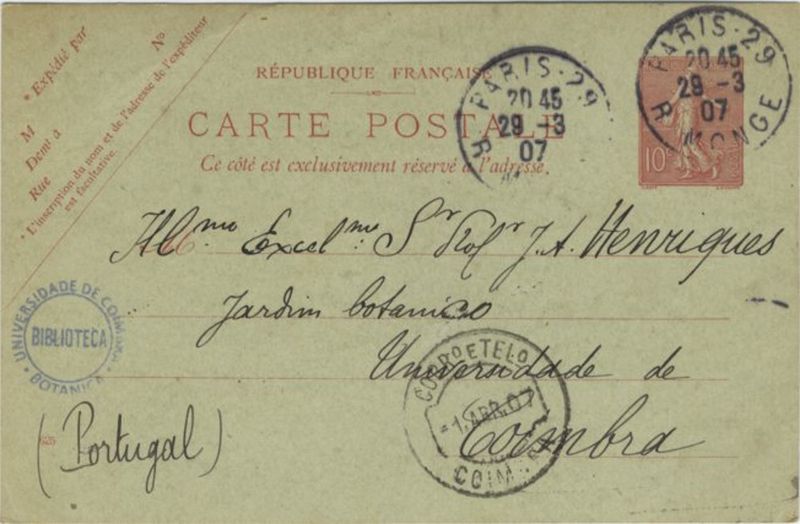 * Expédié par
No
M
Demt à
Rue
* L'inscription du nom et de l'adresse de l'expéditeur
est facultative.
RÉPUBLIQUE FRANÇAISE
CARTE POSTALE
Ce côté est exclusivement réservé à l'adresse.
PARIS-29
20 45
29 -3
07
R.
PARIS-29
20 45
29 -3
07
R. MONGE
10c
Illmo Excelmo: Sr Profr J. A. Henriques
Jardim botanico
Universidade de
Coimbra
(Portugal)
UNIVERSIDADE DE COIMBRA
BIBLIOTECA
BOTANICA
CORROETELO
1.ABR.07
COIM